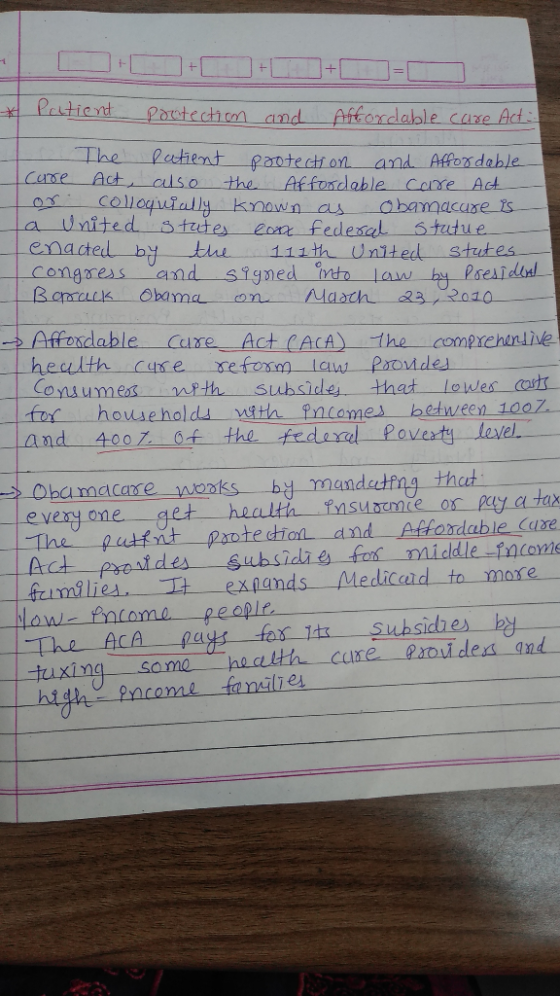 + + + + =
* Patient protection and Affordable care Act:
The Patient protection and Affordable
Care Act, also the Affordable Care Act
or colloquially known as Obamacare is
a United states federal statue
enacted by the 111th United states
congress and signed into law by President
Barack Obama on March 23, 2010
→ Affordable care Act (ACA) The comprehensive
health care reform law provides
Consumers with subsides that lower costs
for households with incomes between 100%
and 400% of the federal Poverty level.
→ Obamacare works by mandating that
everyone get health insurance or pay a tax
The patint protection and Affordable Care
Act provides subsidies for middle-income
families. It expands Medicaid to more
low-income people.
The ACA pays for its subsidies by
taxing some health care providers and
high-income families